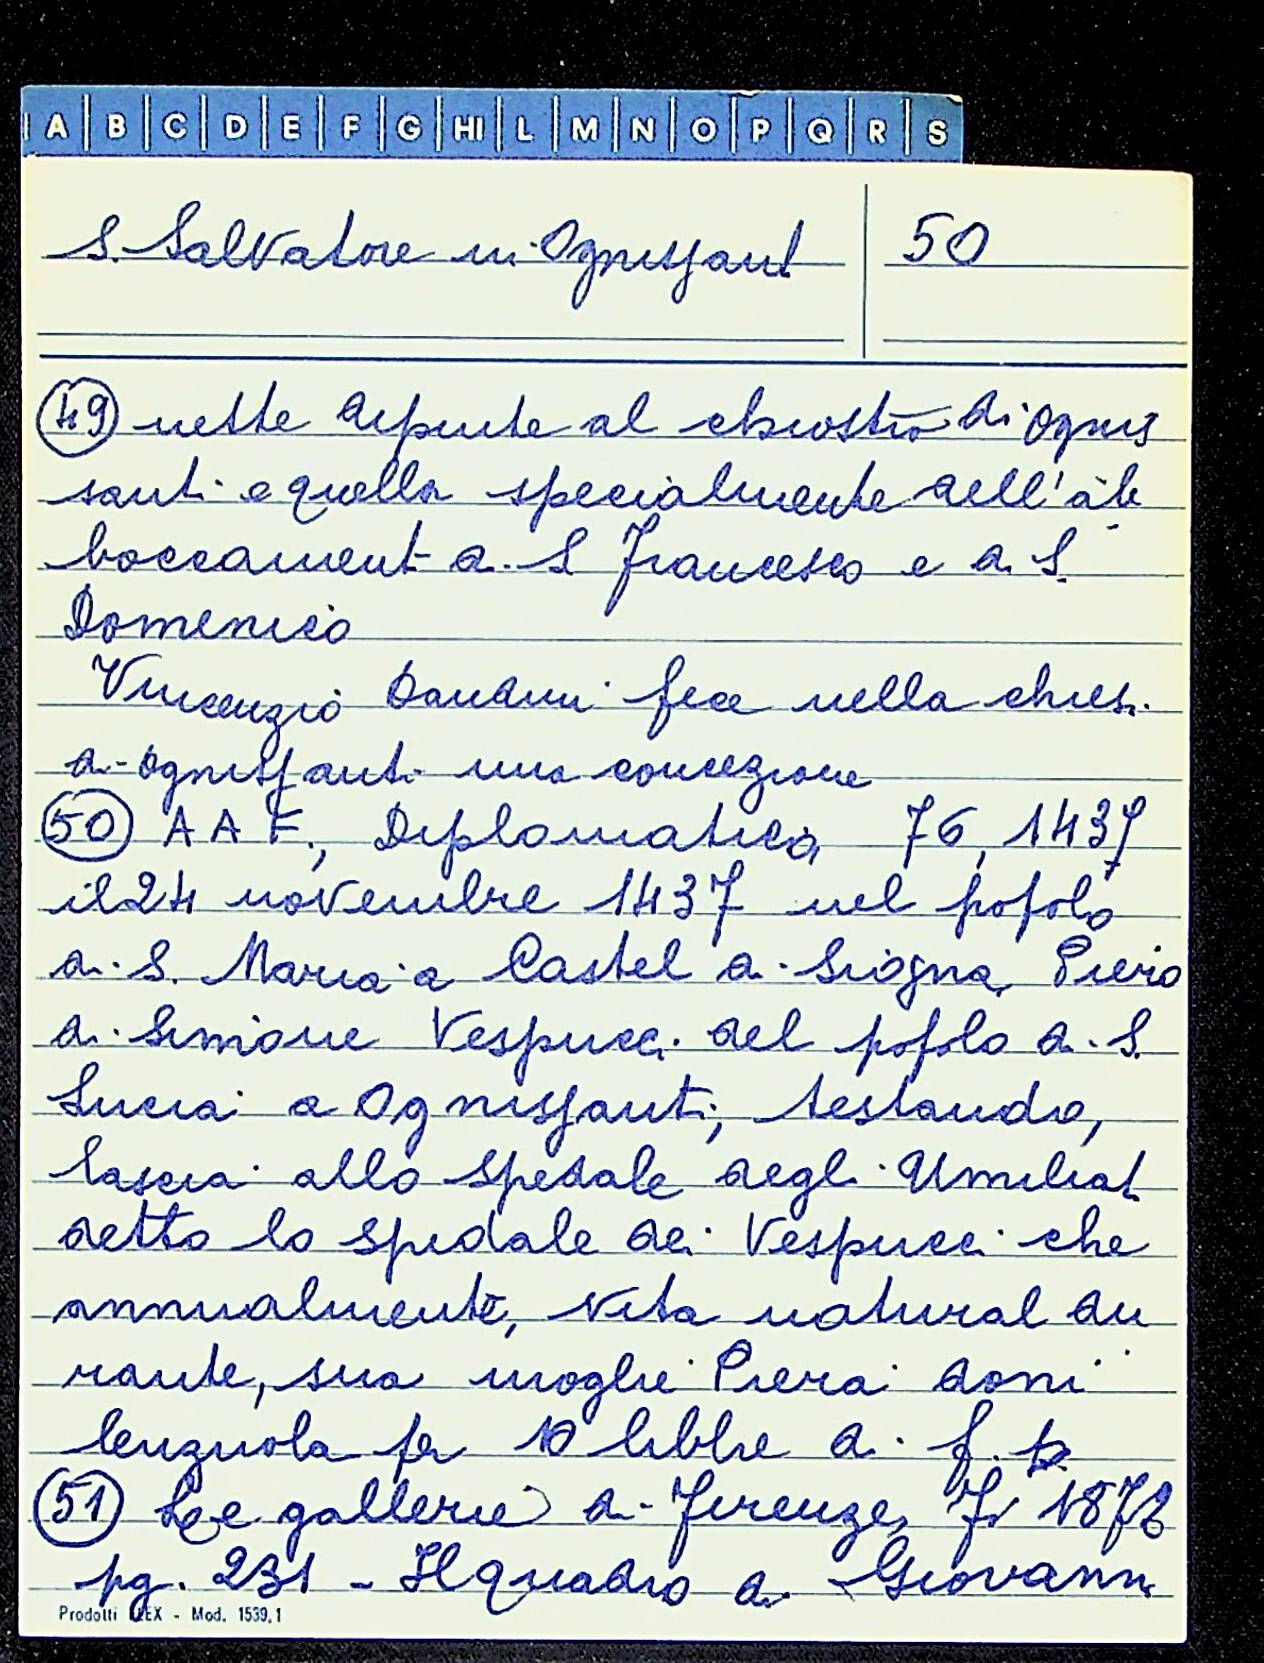 A B C D E F G HI L M N O P Q R S
S. Salvatore in Ognissanti
50
49 nette dipinte al chiostro di Ognis
santi e quella specialmente dell'ab
boccamento di S Francesco e di S.
Domenico
Vincenzio Dandini fece nella chiesa
di Ognissanti una concezione
50 A A F., Diplomatico, 76, 1437
il 24 novembre 1437 nel popolo
di S. Maria a Castel di Signa, Piero
di Simone Vespucci del popolo di S.
Lucia a Ognissanti, testando,
lascia allo Spedale degli Umiliati
detto lo Spedale dei Vespucci che
annualmente, vita natural du
rante, sua moglie Piera doni
lenzuola per 10 libbre di f. p.
51 Le gallerie di Firenze, Fi 1872
pg. 231 - Il quadro di Giovanni
Prodotti - Mod. 1539.1